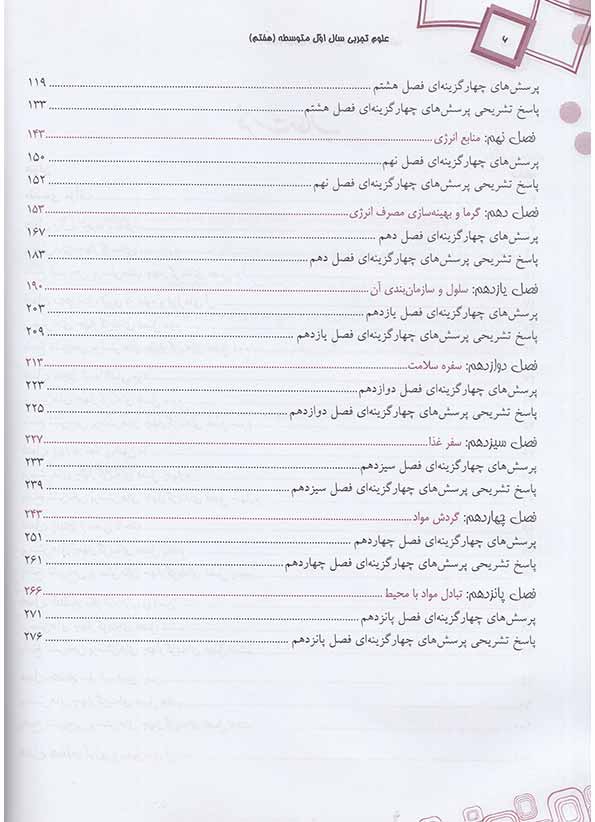 ۶
علوم تجربی سال اوّل متوسطه (هفتم)
پرسش‌های چهارگزینه‌ای فصل هشتم ........ ۱۱۹
پاسخ تشریحی پرسش‌های چهارگزینه‌ای فصل هشتم ........ ۱۳۳
فصل نهم: منابع انرژی ........ ۱۴۳
پرسش‌های چهارگزینه‌ای فصل نهم ........ ۱۵۰
پاسخ تشریحی پرسش‌های چهارگزینه‌ای فصل نهم ........ ۱۵۲
فصل دهم: گرما و بهینه‌سازی مصرف انرژی ........ ۱۵۳
پرسش‌های چهارگزینه‌ای فصل دهم ........ ۱۶۷
پاسخ تشریحی پرسش‌های چهارگزینه‌ای فصل دهم ........ ۱۸۳
فصل یازدهم: سلول و سازمان‌بندی آن ........ ۱۹۰
پرسش‌های چهارگزینه‌ای فصل یازدهم ........ ۲۰۳
پاسخ تشریحی پرسش‌های چهارگزینه‌ای فصل یازدهم ........ ۲۰۹
فصل دوازدهم: سفره سلامت ........ ۲۱۳
پرسش‌های چهارگزینه‌ای فصل دوازدهم ........ ۲۲۳
پاسخ تشریحی پرسش‌های چهارگزینه‌ای فصل دوازدهم ........ ۲۲۵
فصل سیزدهم: سفر غذا ........ ۲۲۷
پرسش‌های چهارگزینه‌ای فصل سیزدهم ........ ۲۳۳
پاسخ تشریحی پرسش‌های چهارگزینه‌ای فصل سیزدهم ........ ۲۳۹
فصل چهاردهم: گردش مواد ........ ۲۴۳
پرسش‌های چهارگزینه‌ای فصل چهاردهم ........ ۲۵۱
پاسخ تشریحی پرسش‌های چهارگزینه‌ای فصل چهاردهم ........ ۲۶۱
فصل پانزدهم: تبادل مواد با محیط ........ ۲۶۶
پرسش‌های چهارگزینه‌ای فصل پانزدهم ........ ۲۷۱
پاسخ تشریحی پرسش‌های چهارگزینه‌ای فصل پانزدهم ........ ۲۷۶